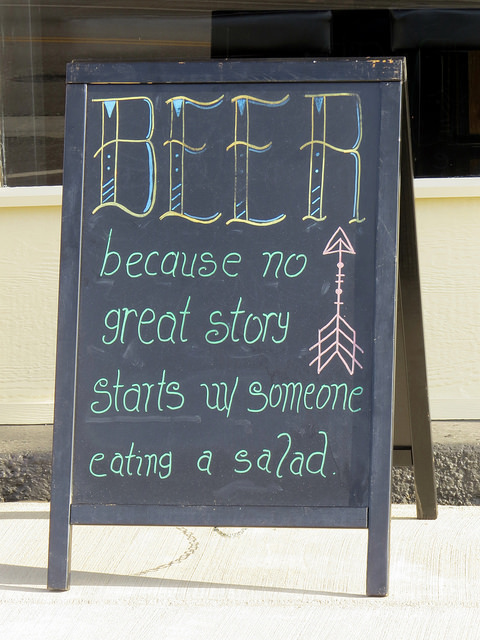 BEER
because no
great story
starts w/ someone
eating a salad.